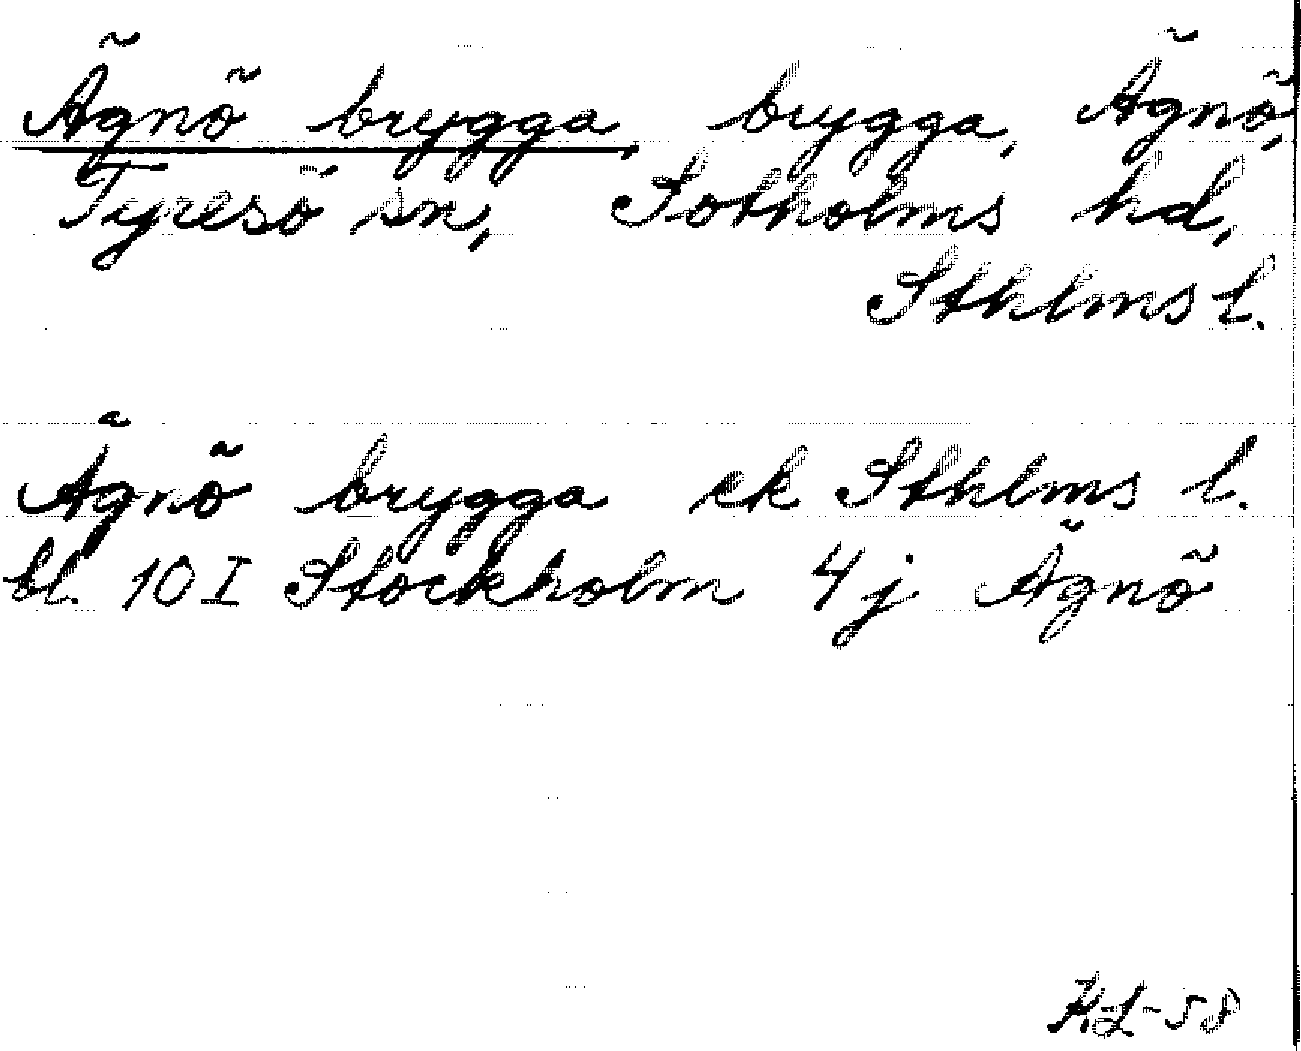 Ägnö brygga, brygga, Ägnö,
Tyresö sn, Sotholms hd,
Sthlms l.
Ägnö brygga ek Sthlms l.
bl. 10 I Stockholm 4j Ägnö
K.L-58